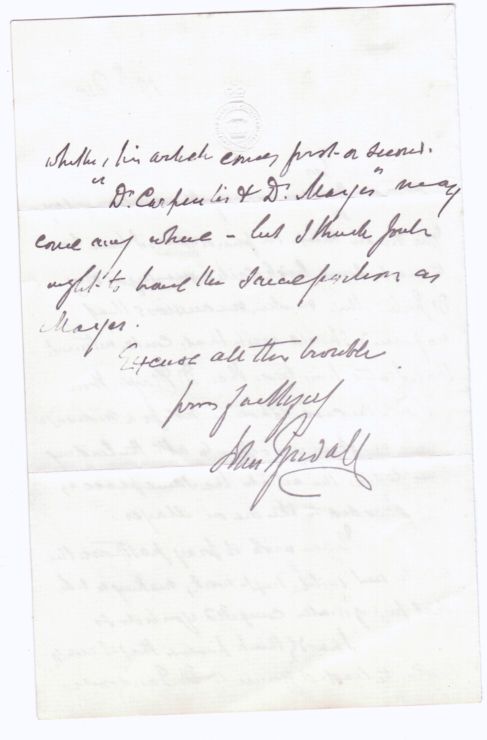 whether his article comes first or second.
"Dr. Carpenter & Dr. Mayer" may
come any where – but I think Joule
ought to have the same position as
Mayer.
Excuse all this trouble
yours faithfully
John Tyndall